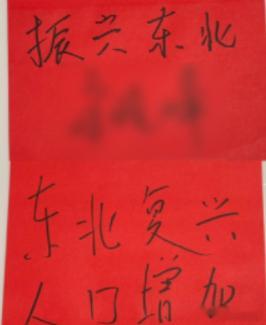 振兴东北
东北复兴
人口增加